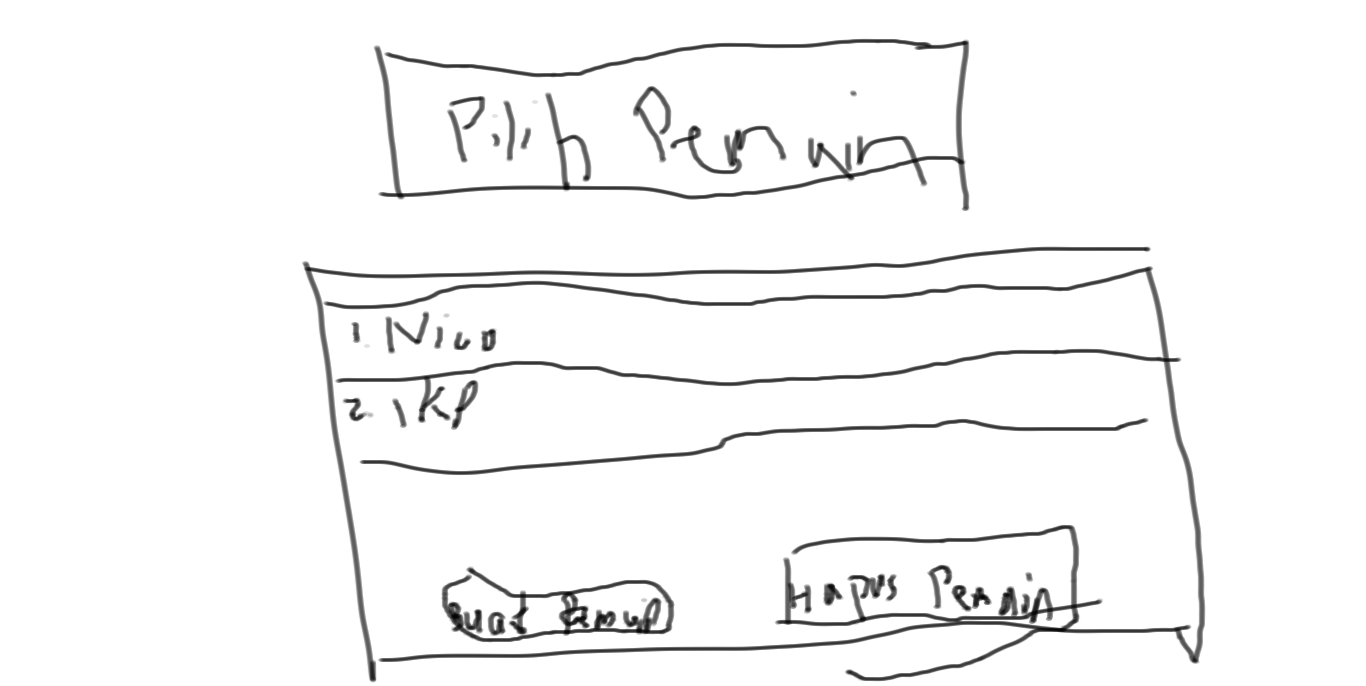 Pilih Pemain
1. Nico
2. IKP
Buat Pemain
Hapus Pemain